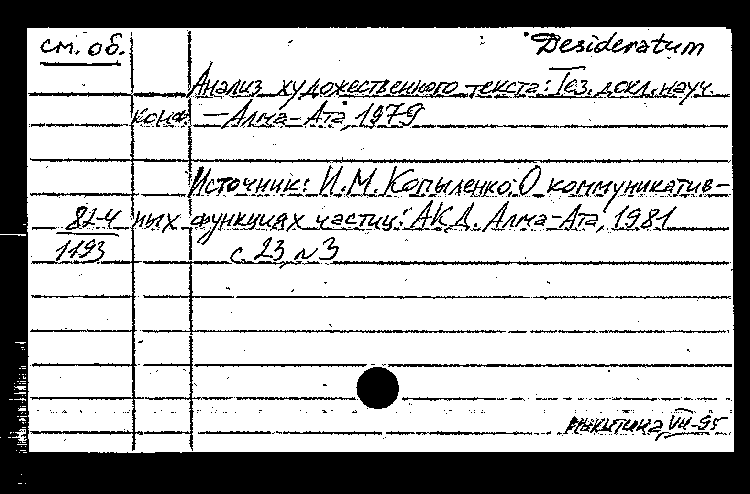 см. об.
Desideratum
Анализ художественного текста: Тез. докл. науч.
конф. — Алма-Ата, 1979
Источник: И.М. Копыленко. О коммуникатив-
82-4 ных функциях частиц: АКД. Алма-Ата, 1981
1193 с. 23, №3
Никитина, VII-95